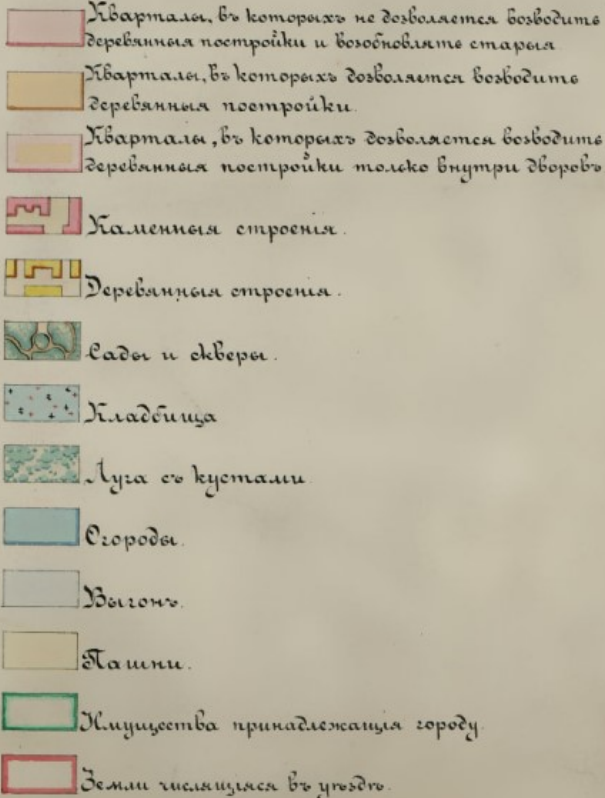 Кварталы, въ которыхъ не дозволяется возводить
деревянныя постройки и возобновлять старыя
Кварталы, въ которыхъ дозволяется возводить
деревянныя постройки.
Кварталы, въ которыхъ дозволяется возводить
деревянныя постройки только внутри дворовъ
Каменныя строенія.
Деревянныя строенія.
Сады и скверы.
Кладбища
Луга съ кустами
Огороды.
Выгонъ.
Пашни.
Имущества принадлежащія городу.
Земли числящіяся въ уѣздѣ.